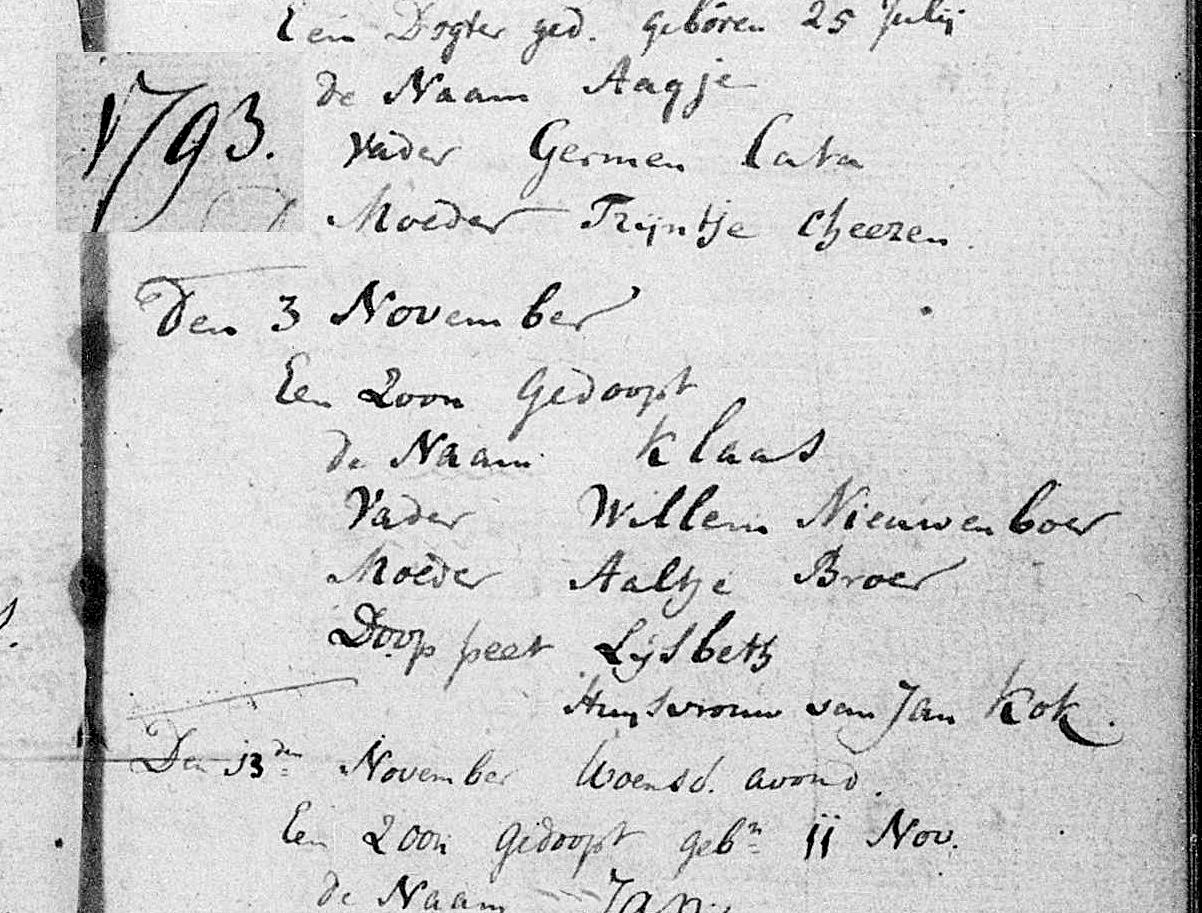 Een Dogter ged. geboren 25 Julij
1793.
de Naam Aagje
Vader Germen Cata
Moeder Trijntje Cheezen.
Den 3 November
Een Zoon Gedoopt
de Naam Klaas
Vader Willem Nieuwenboer
Moeder Aaltje Broer
Doop peet Lijsbeth
Huysvrouw van Jan Kok.
Den 13den November Woensd. avond.
Een Zoon Gedoopt gebn 11 Nov.
de Naam Jan